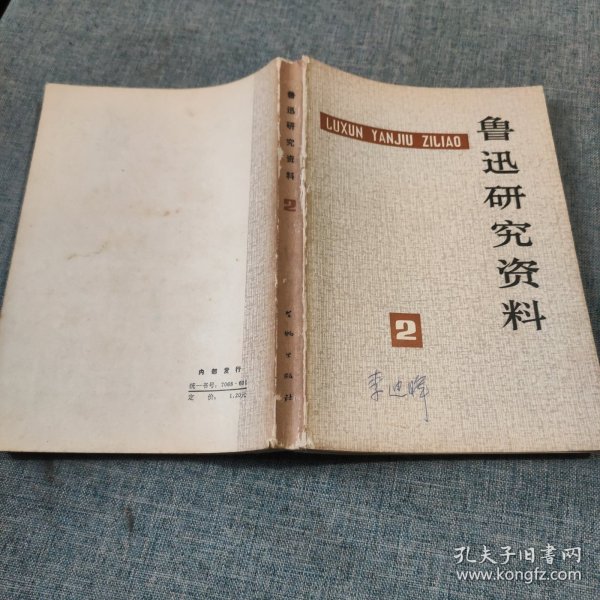 LUXUN YANJIU ZILIAO
鲁迅研究资料
2
鲁迅研究资料
2
文物出版社
内部发行
统一书号：7068·
定价：1.20元
孔夫子旧书网
www.kongfz.com